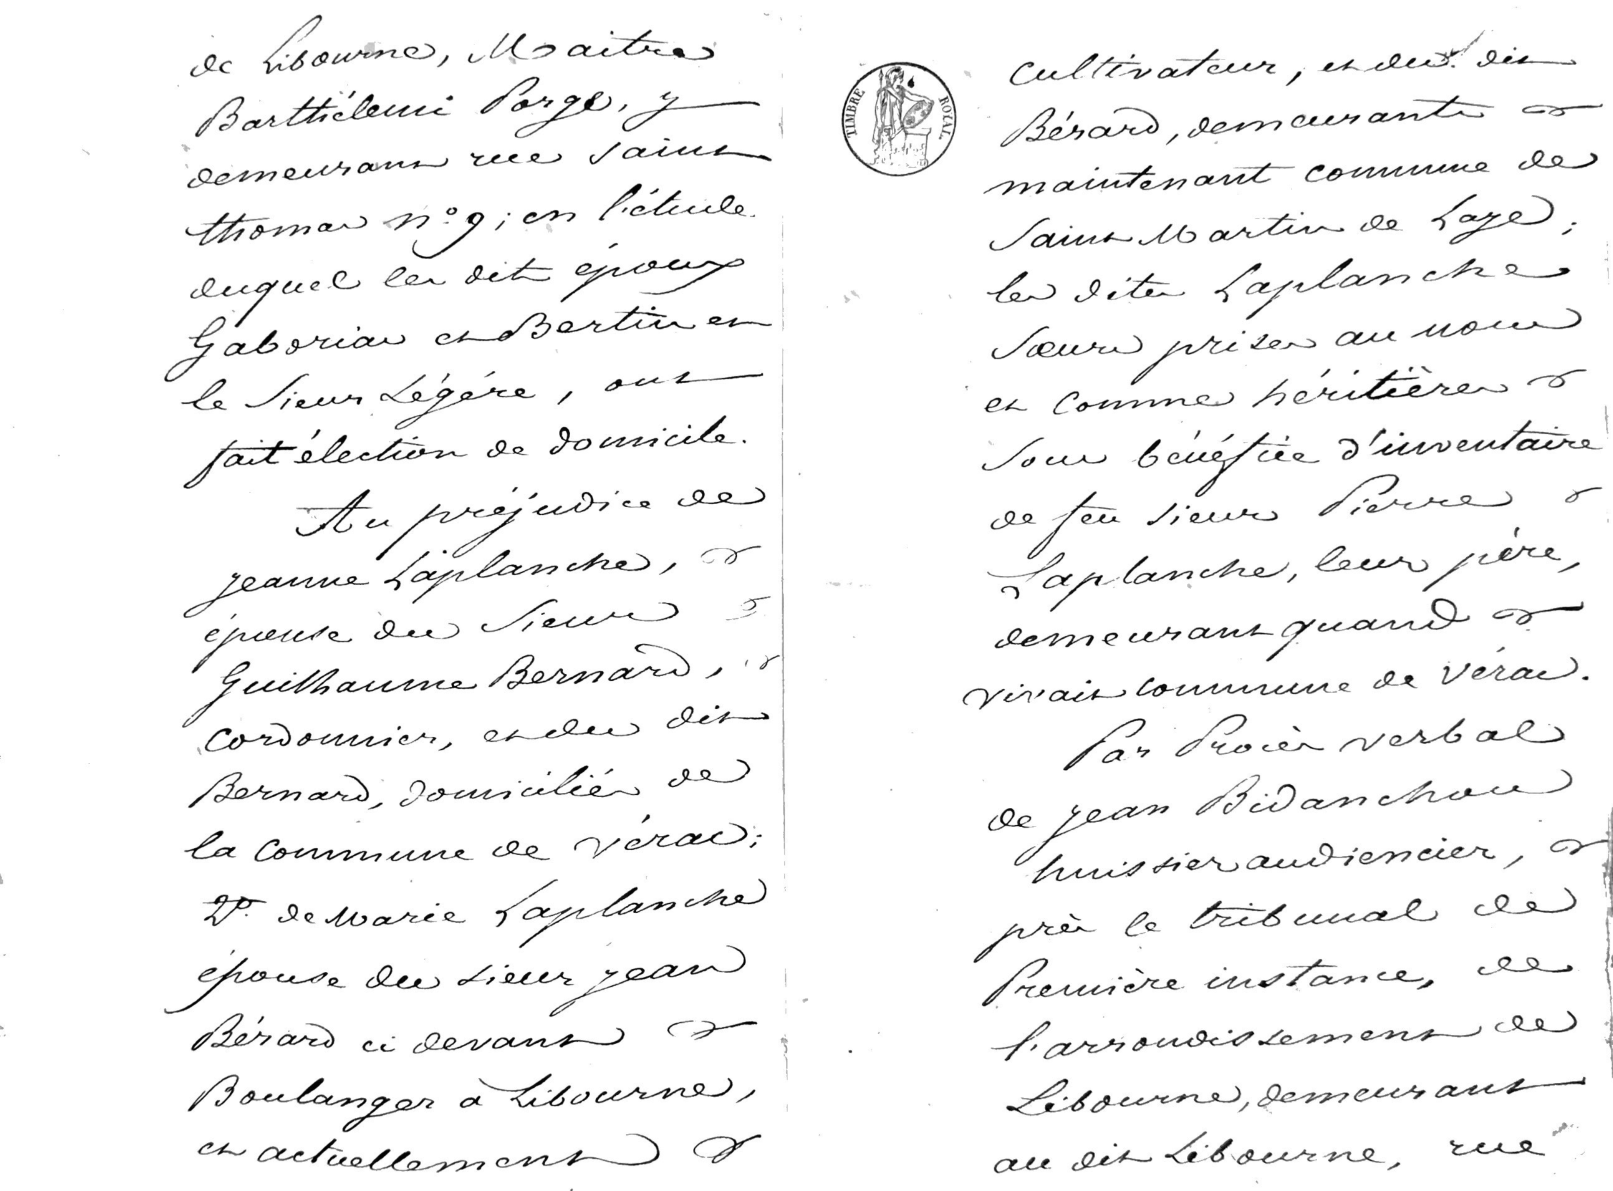 de Libourne, Maitre
Barthélemi Porge, y
demeurant rue saint
thomas n.° 9; en l'étude
duquel les dits époux
Gaboriau et Bertin et
le Sieur Légére, ont
fait élection de domicile.
Au préjudice de
jeanne Laplanche,
épouse du Sieur
Guilhaume Bernard,
cordonnier, et du dit
Bernard, domiciliés de
la commune de vérac;
2.° de Marie Laplanche
épouse du sieur jean
Bérard ci devant
Boulanger à Libourne,
et actuellement
TIMBRE ROYAL
cultivateur, et du dit
Bérard, demeurants
maintenant commune de
Saint Martin de Laye;
les dites Laplanche
Sœurs prises au nom
et comme héritières
Sous bénéfice d'inventaire
de feu sieur Pierre
Laplanche, leur père,
demeurant quand
vivait commune de vérac.
Par Procès verbal
de jean Bidanchou
huissier audiencier,
près le tribunal de
Première instance, de
l'arrondissement de
Libourne, demeurant
au dit Libourne, rue